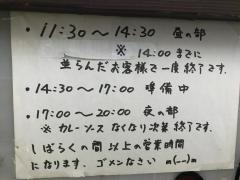 ・11:30～14:30 昼の部
※ 14:00までに
並らんだお客様で一度終了です.
・14:30～17:00 準備中
・17:00～20:00 夜の部
※ カレーソースなくなり次第終了です.
しばらくの間以上の営業時間
になります. ゴメンなさい m(__)m